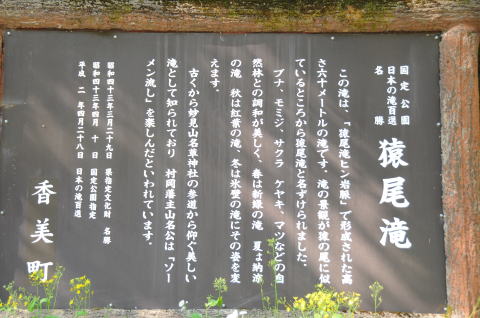 国定公園
日本の滝百選
名勝
猿尾滝
この滝は、「猿尾滝ヒン岩脈」で形成された高
さ六十メートルの滝です。滝の景観が猿の尾に似
ているところから猿尾滝と名ずけられました。
ブナ、モミジ、サクラ、ケヤキ、マツなどの自
然林との調和が美しく、春は新緑の滝、夏は納涼
の滝、秋は紅葉の滝、冬は氷雪の滝にその姿を変
えます。
古くから妙見山名草神社の参道から仰ぐ美しい
滝として知られており、村岡藩主山名公は「ソー
メン流し」を楽しんだといわれています。
昭和四十三年三月二十九日 県指定文化財 名勝
昭和四十三年四月 十日 国定公園指定
平成 二年四月二十八日 日本の滝百選
香美町